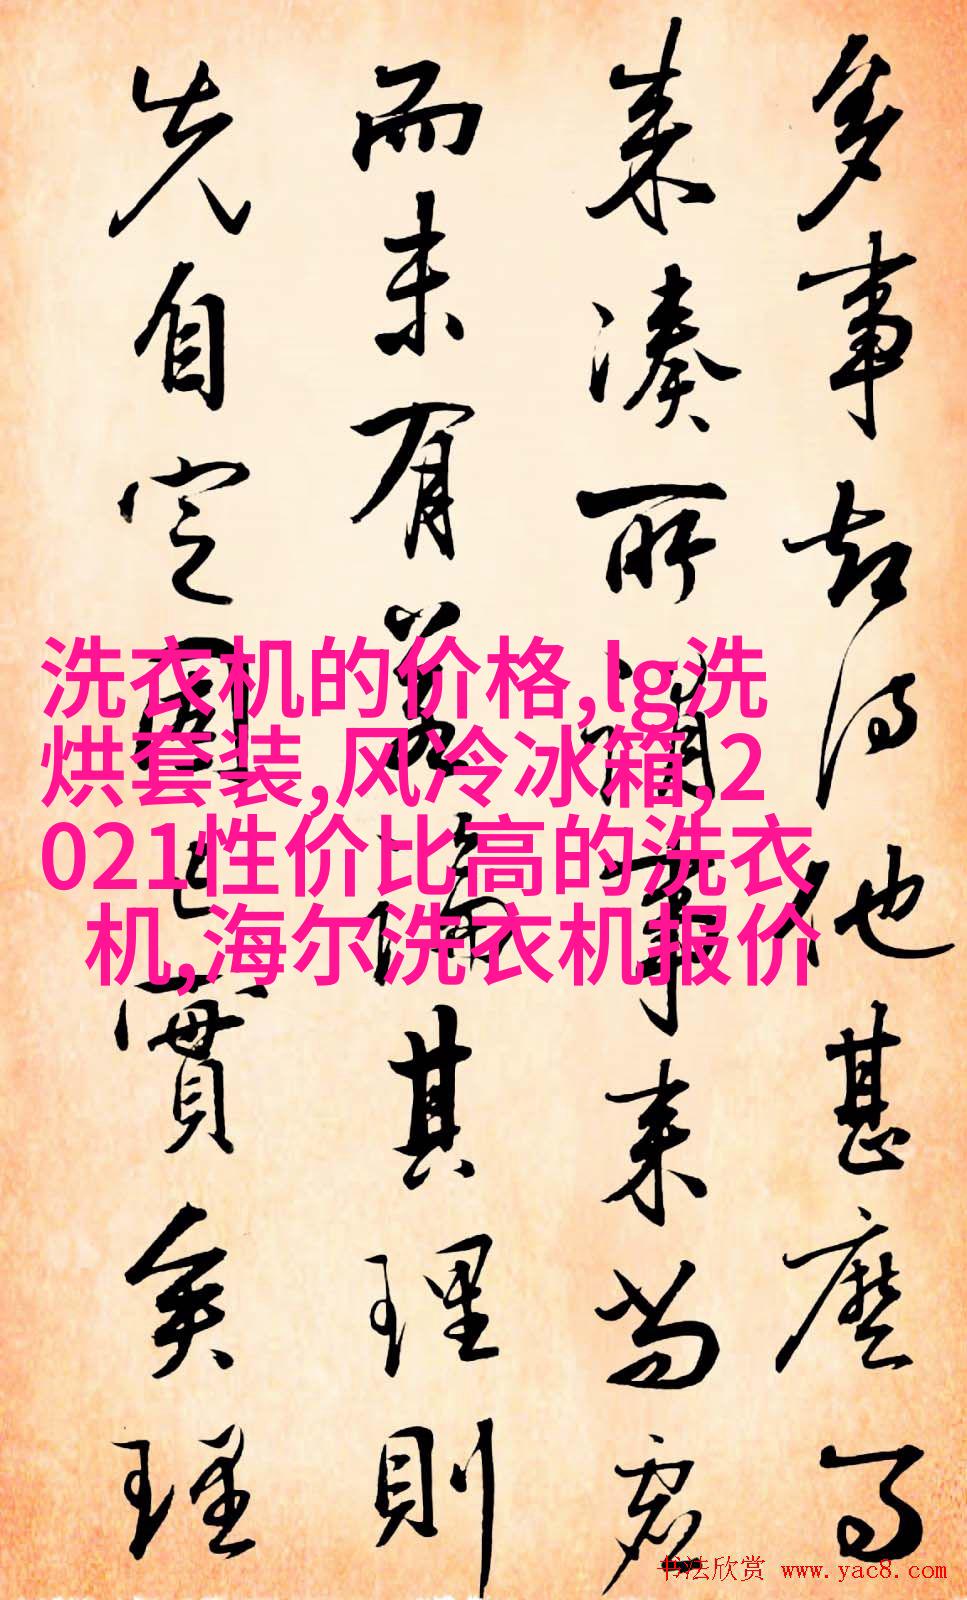 多事却得他甚麽
来凑所謂事来
而未有若論其理則
先自定固已實矣理
洗衣机的价格,lg洗
烘套装,风冷冰箱,2
021性价比高的洗衣
机,海尔洗衣机报价
书法欣赏 www.yac8.com